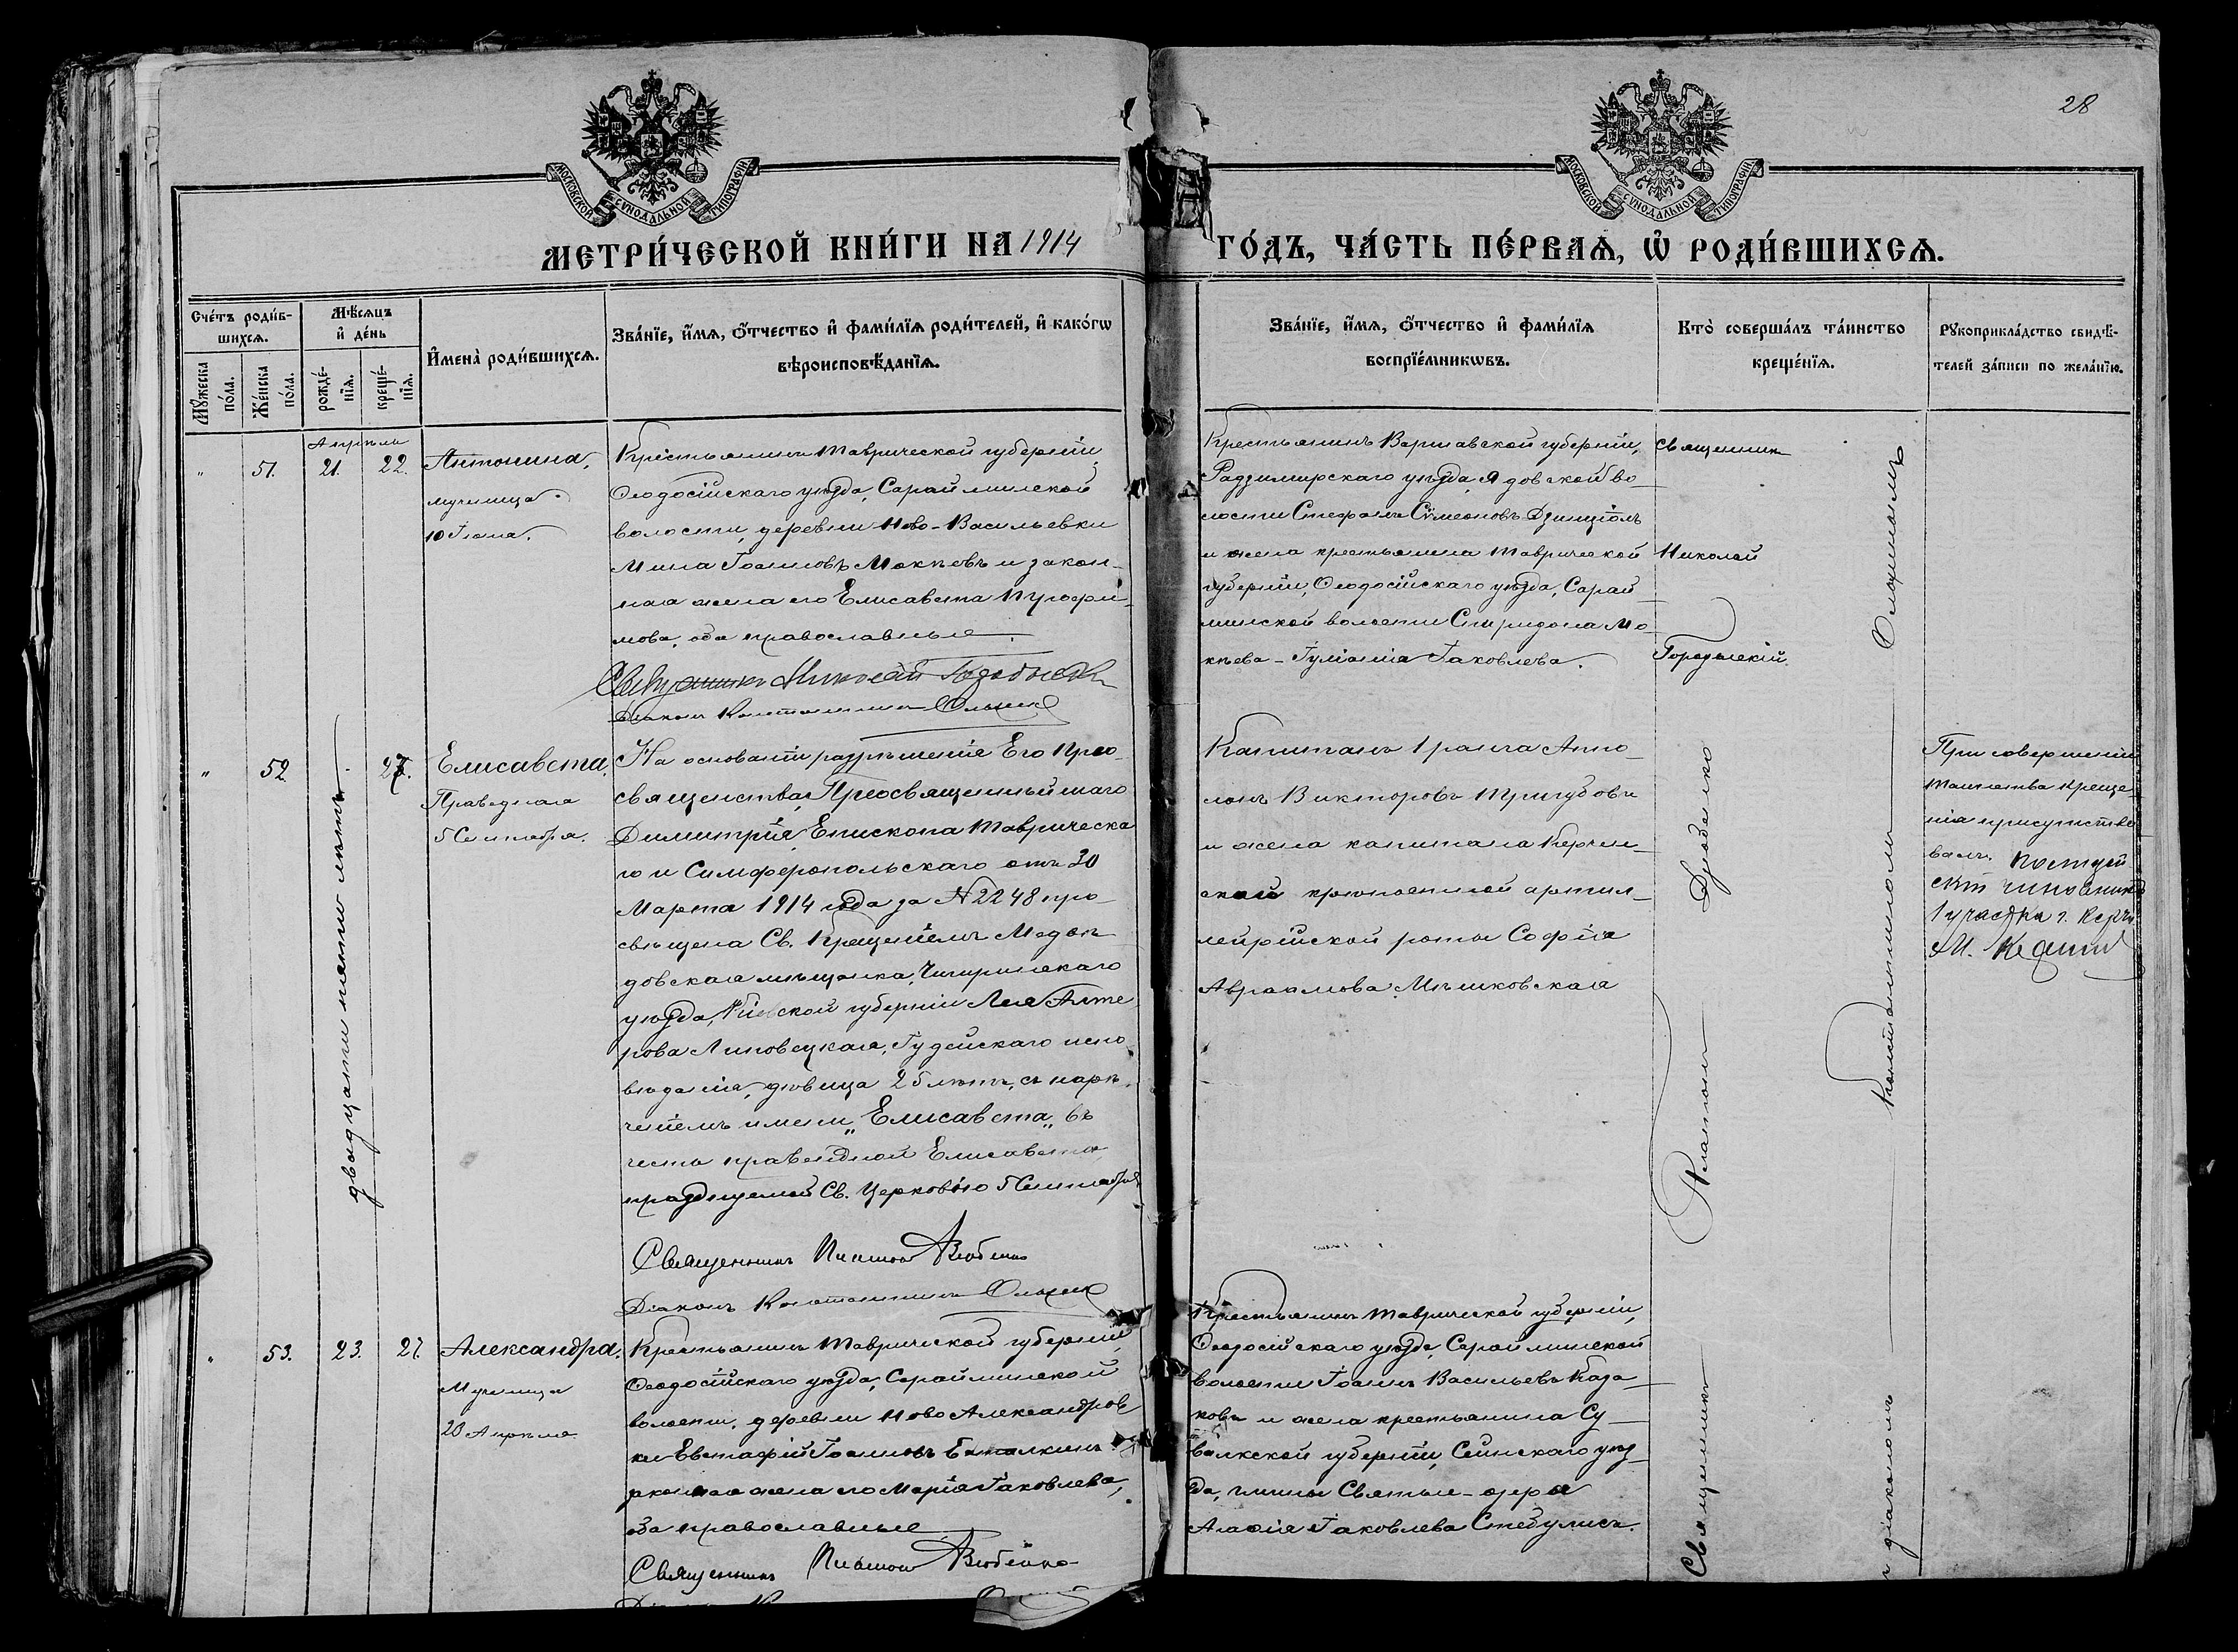 28
МОСКОВСКОЙ СѴНОДАЛЬНОЙ ТИПОГРАФІИ
МОСКОВСКОЙ СѴНОДАЛЬНОЙ ТИПОГРАФІИ
МЕТРИ́ЧЕСКОЙ КНИ́ГИ НА 1914 ГО́ДЪ, ЧА́СТЬ ПЕ́РВАѦ, Ѽ РОДИ́ВШИХСѦ.
Сче́тъ роди́в-
шихсѧ.
Мꙋ́жеска
по́ла.
Же́нска
по́ла.
Мѣ́сѧцъ
и҆ де́нь
рожде́-
нїѧ.
креще́-
нїѧ.
И҆мена̀ роди́вшихсѧ.
Зва́нїе, и҆́мѧ, ѻ҆́тчество и҆ фами́лїѧ роди́телей, и҆ како́гѡ
вѣроисповѣ́данїѧ.
Зва́нїе, и҆́мѧ, ѻ҆́тчество и҆ фами́лїѧ
воспрїе́мникѡвъ.
Кто̀ соверша́лъ та́инство
креще́нїѧ.
Рꙋкоприкла́дство свидѣ́-
телей за́писи по жела́нїю.
Апрѣль
" 51. 21. 22.
Антонина,
мученица
10 Іюня.
Крестьянинъ Таврической губерніи,
Ѳеодосійскаго уѣзда, Сарайминской
волости, деревни Ново-Васильевки
Мина Іоанновъ Мокѣевъ и закон-
ная жена его Елисавета
мова, оба православные.
Священникъ Николай
Діаконъ Константинъ
Крестьянинъ Варшавской губерніи,
Радзимирскаго уѣзда, Ядовской во-
лости Стефанъ Сѵмеоновъ
и жена крестьянина Таврической
губерніи, Ѳеодосійскаго уѣзда, Сарай-
минской волости Спиридона Мо-
кѣева - Іуліанія Іаковлева.
Священникъ
Николай
" 52 27.
двадцати пяти лѣтъ
Елисавета,
Праведная
5 Сентября.
На основаніи разрѣшенія Его Прео-
священства, Преосвященнѣйшаго
Димитрія, Епископа Таврическа
го и Симферопольскаго отъ 30
Марта 1914 года за № 2248 про-
свѣщена Св. Крещеніемъ Медвѣ-
довская мѣщанка, Чигиринскаго
уѣзда, Кіевской губерніи Лея Алте
рова Липовецкая, Іудейскаго испо
вѣданія, дѣвица 25 лѣтъ, съ нарѣ-
ченіемъ имени „Елисавета„ въ
честь праведной Елисаветы,
празднуемой Св. Церковію 5 Сентября
Священникъ Платонъ
Діаконъ Константинъ
Капитанъ 1 ранга Апо-
лонъ Викторовъ Тригубовъ
и жена капитана Керчен-
ской крѣпостной артил-
лерійской роты Софія
Авраамова Мѣшковская
Священникъ Платонъ
съ діакономъ Константиномъ
При совершеніи
таинства креще-
нія присутство
валъ.
чиновникъ
1 участка г. Керчи
М.
" 53. 23. 27.
Александра,
Мученица
20 Апрѣля
Крестьянинъ Таврической губерніи,
Ѳеодосійскаго уѣзда, Сарайминской
волости, деревни Ново Александров
ки Евстафій Іоанновъ
законная жена его Марія Іаковлева,
оба православные
Священникъ Платонъ
Крестьянинъ Таврической губерніи,
Ѳеодосійскаго уѣзда, Сарайминской
волости Іоаннъ Васильевъ Каза-
ковъ и жена крестьянина Су-
валкской губерніи, Сейнскаго уѣз-
да, гмины Святые-озера
Агафія Іаковлева